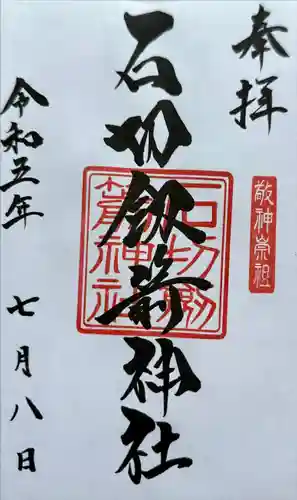 奉拝
敬神崇祖
石切劔箭神社
石切劔
箭神社
令和五年 七月八日